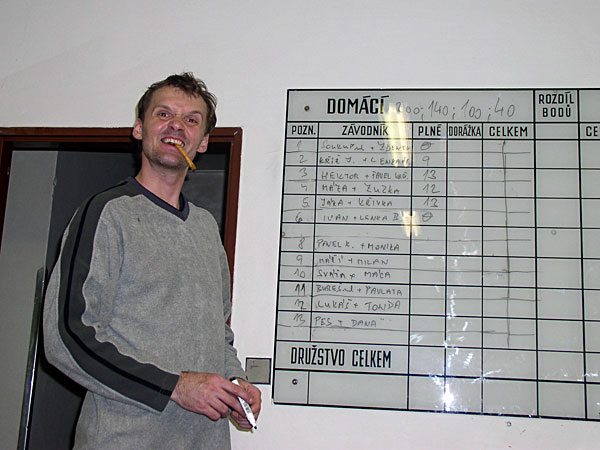 DOMÁCÍ 800; 140; 100; 40 ROZDÍL BODŮ
POZN. ZÁVODNÍK PLNÉ DORÁŽKA CELKEM CE
1 + ZDENEK
2 KŘÍŽ J. + LENKA 9
3 HEKTOR + PAVEL 13
4 MÁŽA + ZUZKA 12
5 JÁRA + KŘIVKA 12
6 IVAN + LENKA II
8 PAVEL K. + MONIKA
9 + MILAN
10 SVÁŤA + MÁCA
11 BUREŠ M + PAVLATA
12 LUKÁŠ + TONDA
13 PES + DANA
DRUŽSTVO CELKEM